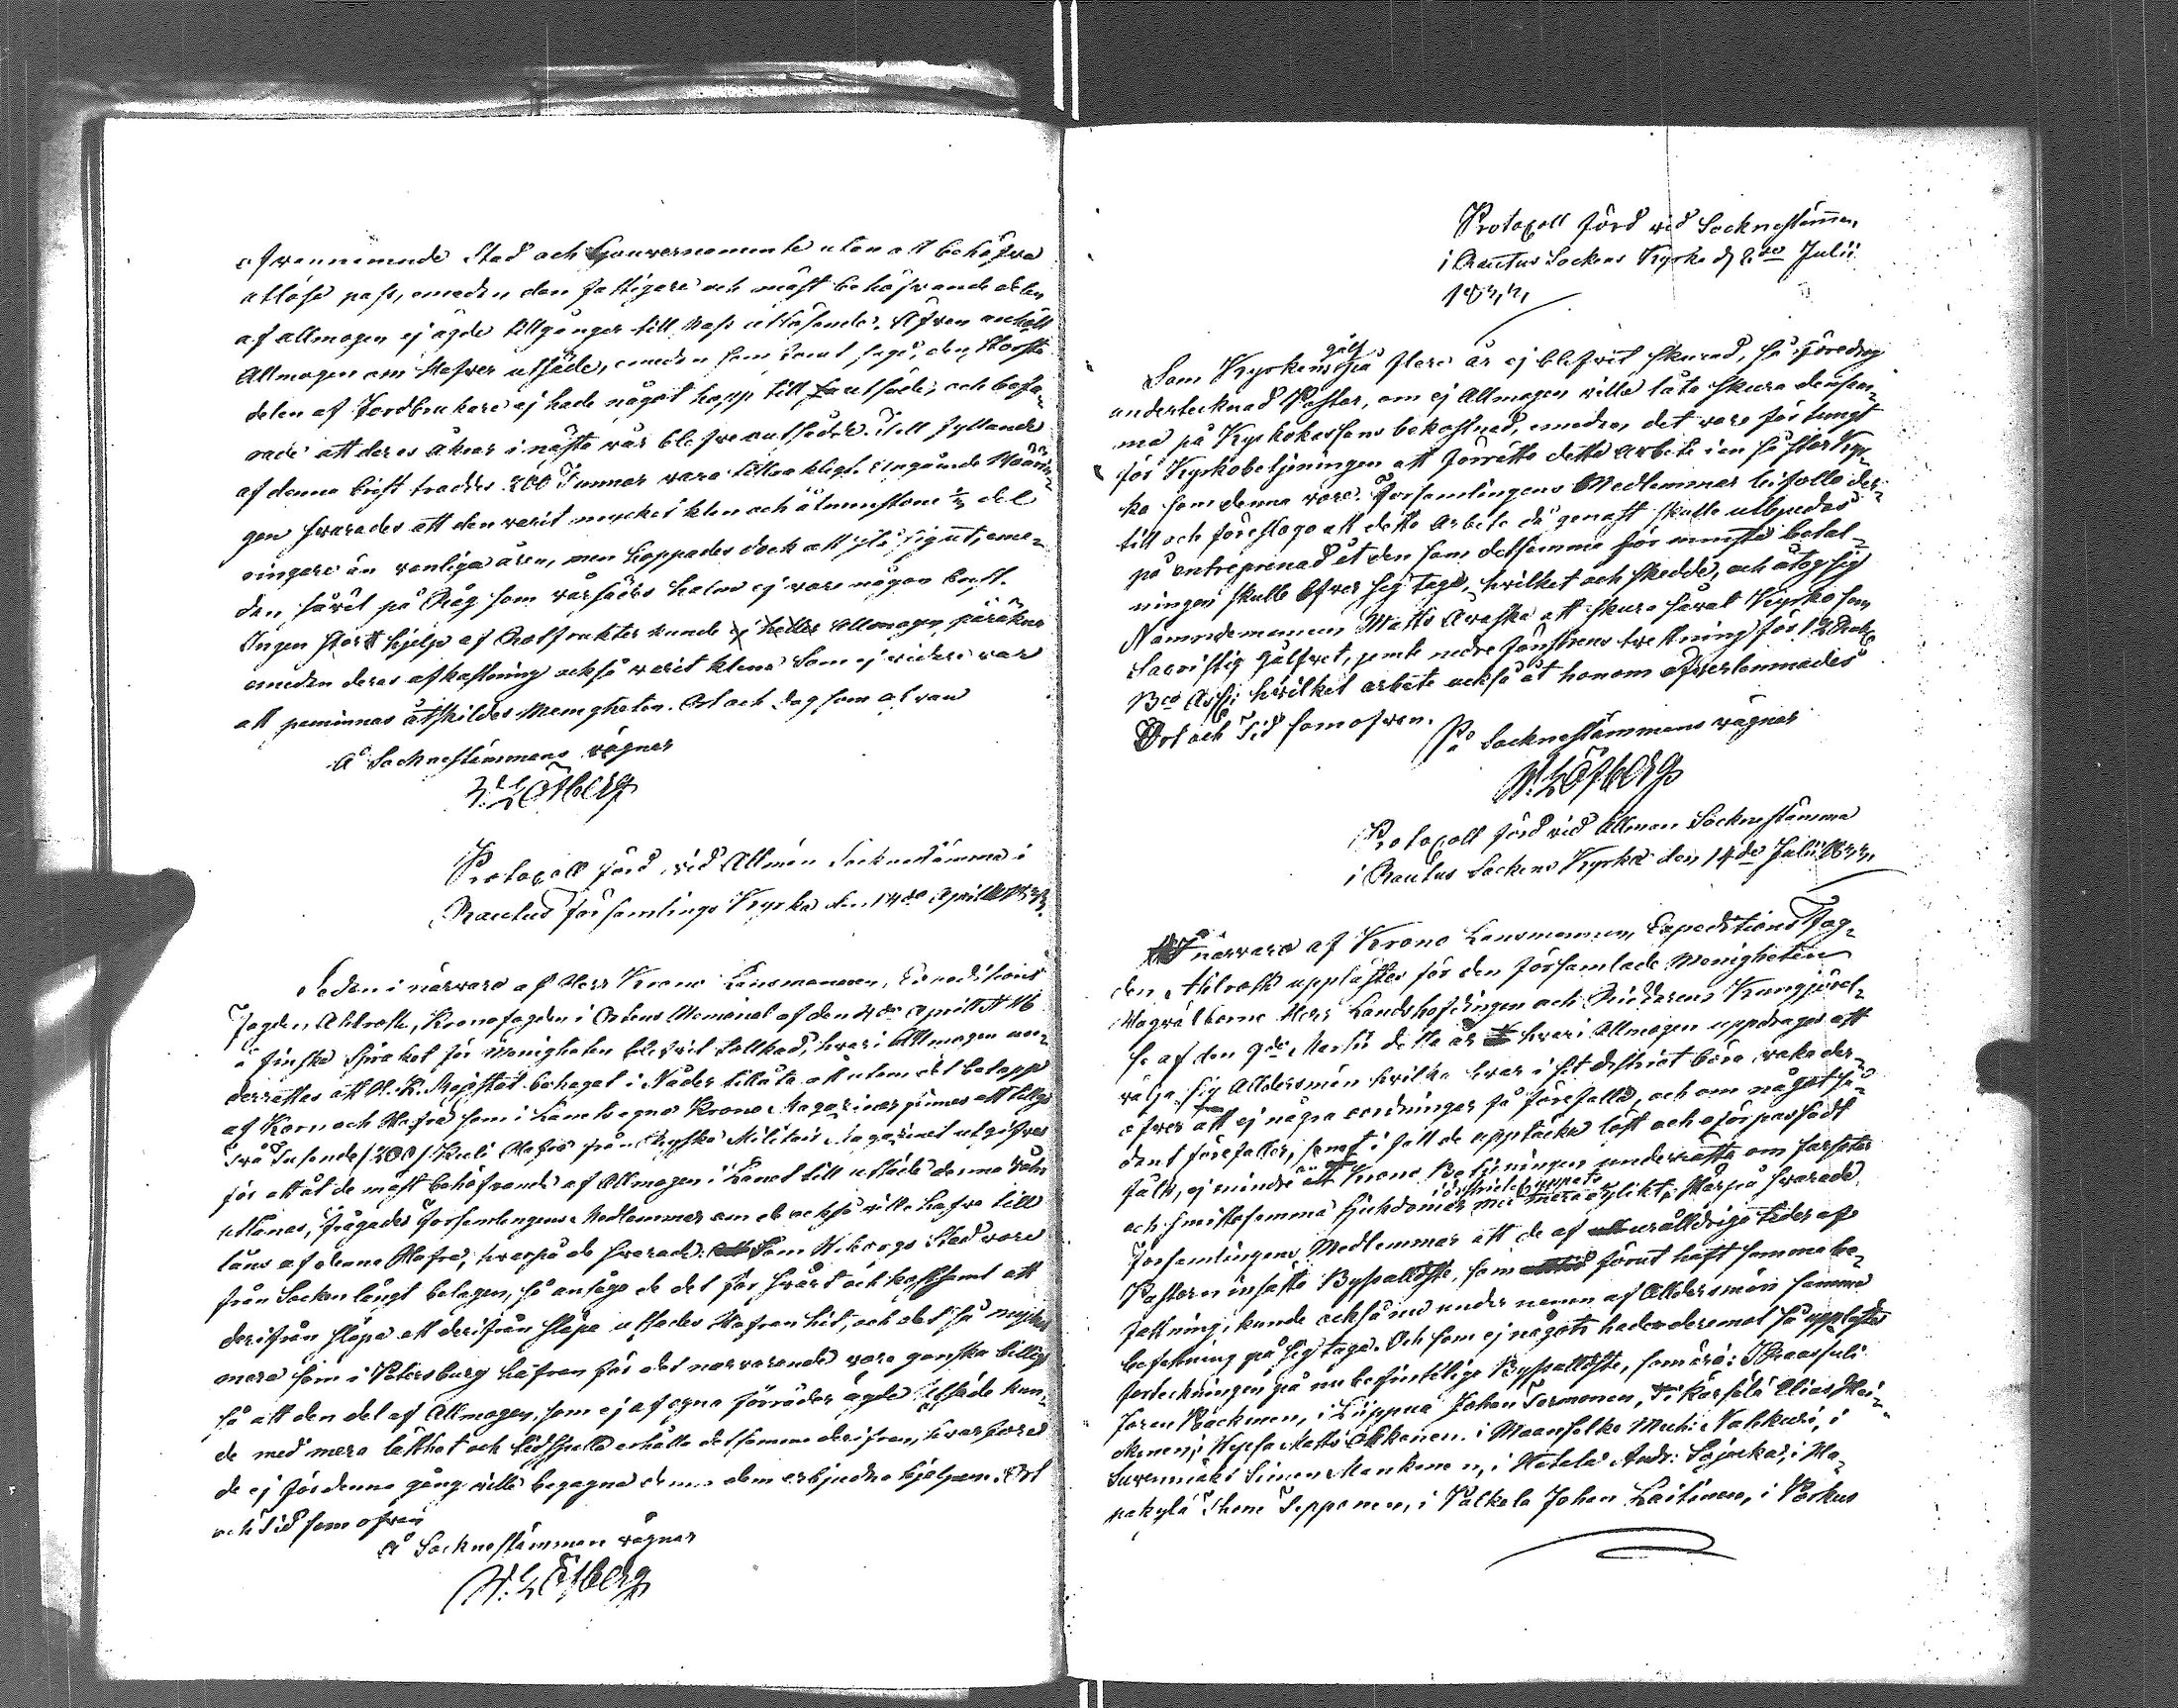 ofvannämnde Stad och Gouvernemente utan att behöfva
utlösa pass, emedan den fattigare och mäst behöfvande delen
af allmogen ej ägde tillgångar till Pass utlösande. Äfven anhöll
Allmogen om Hafver utsäde, emedan som sant sagt, den största
delen af Jordbrukare ej hade något hopp till utsäde, och befa-
rade att deras åkrar i nästa vår blefve outsådde. Till fyllande
af denna brist troddes 200 Tunnor vara tillräckligt. Angående
gen svarades att den varit mycket klen och åtminstone ½ del
ringare än vanliga åren, men hoppades dock att slå sig ut, eme-
dan såväl på Råg som vårsädes halm ej vore någon brist.
Ingen stort hjelp af Rotfrukter kunde ej heller Allmogen påräkna
emedan deras afkastning också varit klena. Som ej vidare var
att påminnas åtskildes Menigheten. Ort och dag som ofvan
På Socknestämmans vägnar
W. Löfberg
Protocoll förd vid Allmän Socknestämma i
Rautus Församlings Kyrka den 14de April 1833
Sedan i närvaro af Herr Krono Länsmannen, Expeditions
Fogden Ahlroth, Kronofogden i Ortens Memorial af den 4de April N 16
å finska språket för Menigheten blifvit tolkad, hvari Allmogen un-
derrättas att H. K. Majestät behagat i Nåder tillåta att utom det belopp
af Korn och Hafra som i Länets egna Krono Magaziner finnes att tillgå
Två Tusende /2000/ Kuli Hafra från Ryska Militair Magazinet utgifves
för att åt de mäst behöfvande af Allmogen i Länet till utsäde denna vår
utlånas, frågades Församlingens Medlemmar om de också ville hafva till
låns af denna Hafra, hvarpå de svarade: Som Wiborgs Stad vore
från Socken långt belägen, så ansågo de det för svårt och kostsamt att
derifrån släpa att derifrån släpa utsädes Hafran hit, och det så mycket
mera som i Petersburg hafran för det närvarande vore ganska billig
så att den del af Allmogen, som ej af egna förråder ägde utsäde kun-
de med mera lätthet och tidsspillo erhålla detsamma derifrån, hvarföre
de ej för denna gång ville begagna denna dem erbjudna hjelpen. Ort
och Tid som ofvan
På Socknestämman vägnar
W. Löfberg
Protocoll förd vid Socknestämma
i Rautus Sockens Kyrka d 2de Julii
1833
Som Kyrkans golf på flere år ej blifvit skurad, så föredrog
undertecknad Pastor, om ej Allmogen ville låta skura densam-
ma på Kyrkokassans bekostnad, emedan det vore för tungt
för Kyrkobetjeningen att förrätta detta arbete i en så stor Kyr-
ka som denna vore. Församlingens Medlemmar biföllo der-
till och föreslogo att detta arbete då genast skulle utbjudas
på entreprenad åt den som detsamma för minsta betal-
ningen skulle öfver sig taga, hvilket och skedde, och åtog sig
Nämndemannen Matts Avaska att skura såväl Kyrko som
Sacristig golfvet, jemte nedre fönstrens tvettning för 12 Rub
Bco Assi: hvilket arbete också åt honom öfverlemnades
Ort och Tid som ofvan.
På Socknestämmans vägnar
W. Löfberg
Protocoll förd vid Allman Socknestämma
i Rautus Sockens Kyrka den 14de Julii 1833
I närvaro af Krono Länsmannen, Expeditions Fog-
den Ahlroth upplästes för den församlade Menigheten
Högvälborne Herr Landshöfdingen och Riddarens Kungjörel-
se af den 9de Martii detta år hvari Allmogen uppdrages att
välja sig Åldersmän hvilka hvar i sit district böra vaka der-
öfver att ej några oordningar få förefalla, och om något så-
dant förefaller, samt i fall de upptäcka löst och oförpassadt
fälk, ej mindre att Krono Betjeningen underrätta om farsoter
och smittosamma sjukdomar i distriktet yppats med mera dylikt. Härpå svarade
Församlingens Medlemmar att de af urålldriga tider af
Pastorn insatte Byssallte, som förut haft samma be-
fattning, kunde också nu under namn af Åldersmän samma
befattning på sig taga. Och som ej någon hade deremot så upplästes
förteckningen på nu befintelige Byssallte, som äro: I Raasuli
Joran Räckmen, i Liippua Johan Termonen, i Kärsälä Elias Hei-
kenen, i Wepsa Matts Akkanen, i Maanselkä Mich: Nakkuri, i
Suvenmäki Simon Mankinen, i Hatala Andr: Sojuka, i Ha-
pakylä Thom Tepponen, i Palkola Johan Laitinen, i Porkus